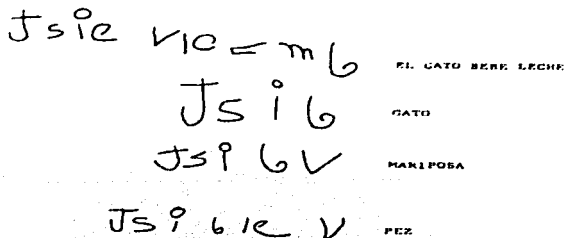 Jsie vie = m6 EL GATO BEBE LECHE
Js i 6 GATO
Jsi 6 V MARIPOSA
Js i 6 ie V PEZ